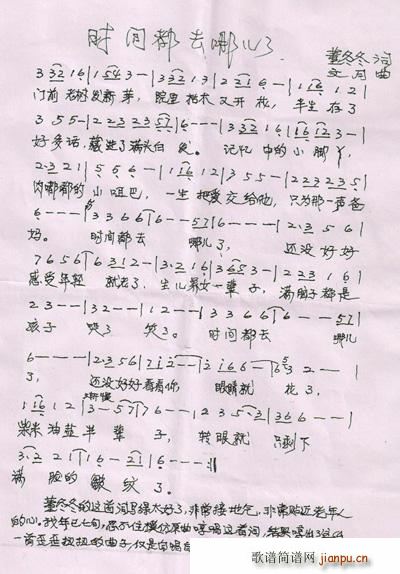 时间都去哪儿了
董冬冬 词
文同 曲
3 3̲2̲ 1 6 | 1 5̲4̲ 3 — | 3 3̲2̲ 1 3 | 2 2̲1̲ 6 — | 1 1̲6̲ 1 2 |
门前老树发新芽，院里枯木又开花，半生存了
3 5 5 — | 2 2 3 2 3 5 7 | 6 — — — | 3 3 2 1 6 | 1 6 1 2 3 — |
好多话，藏进了满头白发。记忆中的小脚丫，
2·3 2 1 | 5 5 6 — | 1 1 6 1 2 | 3 5 5 — | 2 2 3 2 3 5 |
肉嘟嘟的小咀巴，一生把爱交给他，只为那一声爸
6 — — — | 3 3 6 6 | 6 — — 5 7 | 6 — — — | 2·3 5 6 |
妈。时间都去哪儿了，还没好好
7 6 5 6 | 6 3 1 2 — | 3·2 1 6 | 3 6 5 3 — | 2 2 3 1 6 |
感受年轻就老了，生儿养女一辈子，满脑子都是
2 3 — — | 3 2 — — | 1 2 — — | 3 3 6 6 | 6 — — 5 7 |
孩子哭了笑了。时间都去哪儿
6 — — — | 2·3 5 6 | 7 1 2 — |
了，还没好好看看你眼睛就花了，
1 1 6 1 2 | 3 — 5 7 | 7 6 — — | 2 3 5·3 | 3 6 6 — — |
柴米油盐半辈子，转眼就只剩下
满脸的皱纹了。
董冬冬的这首词写得太好了，非常接地气，非常贴近老年人
的心。我年已七旬，忍不住模仿原曲哼唱这首词，结果哼出了这么
一首歪歪扭扭的曲子，仅是自唱自
歌谱简谱网
jianpu.cn